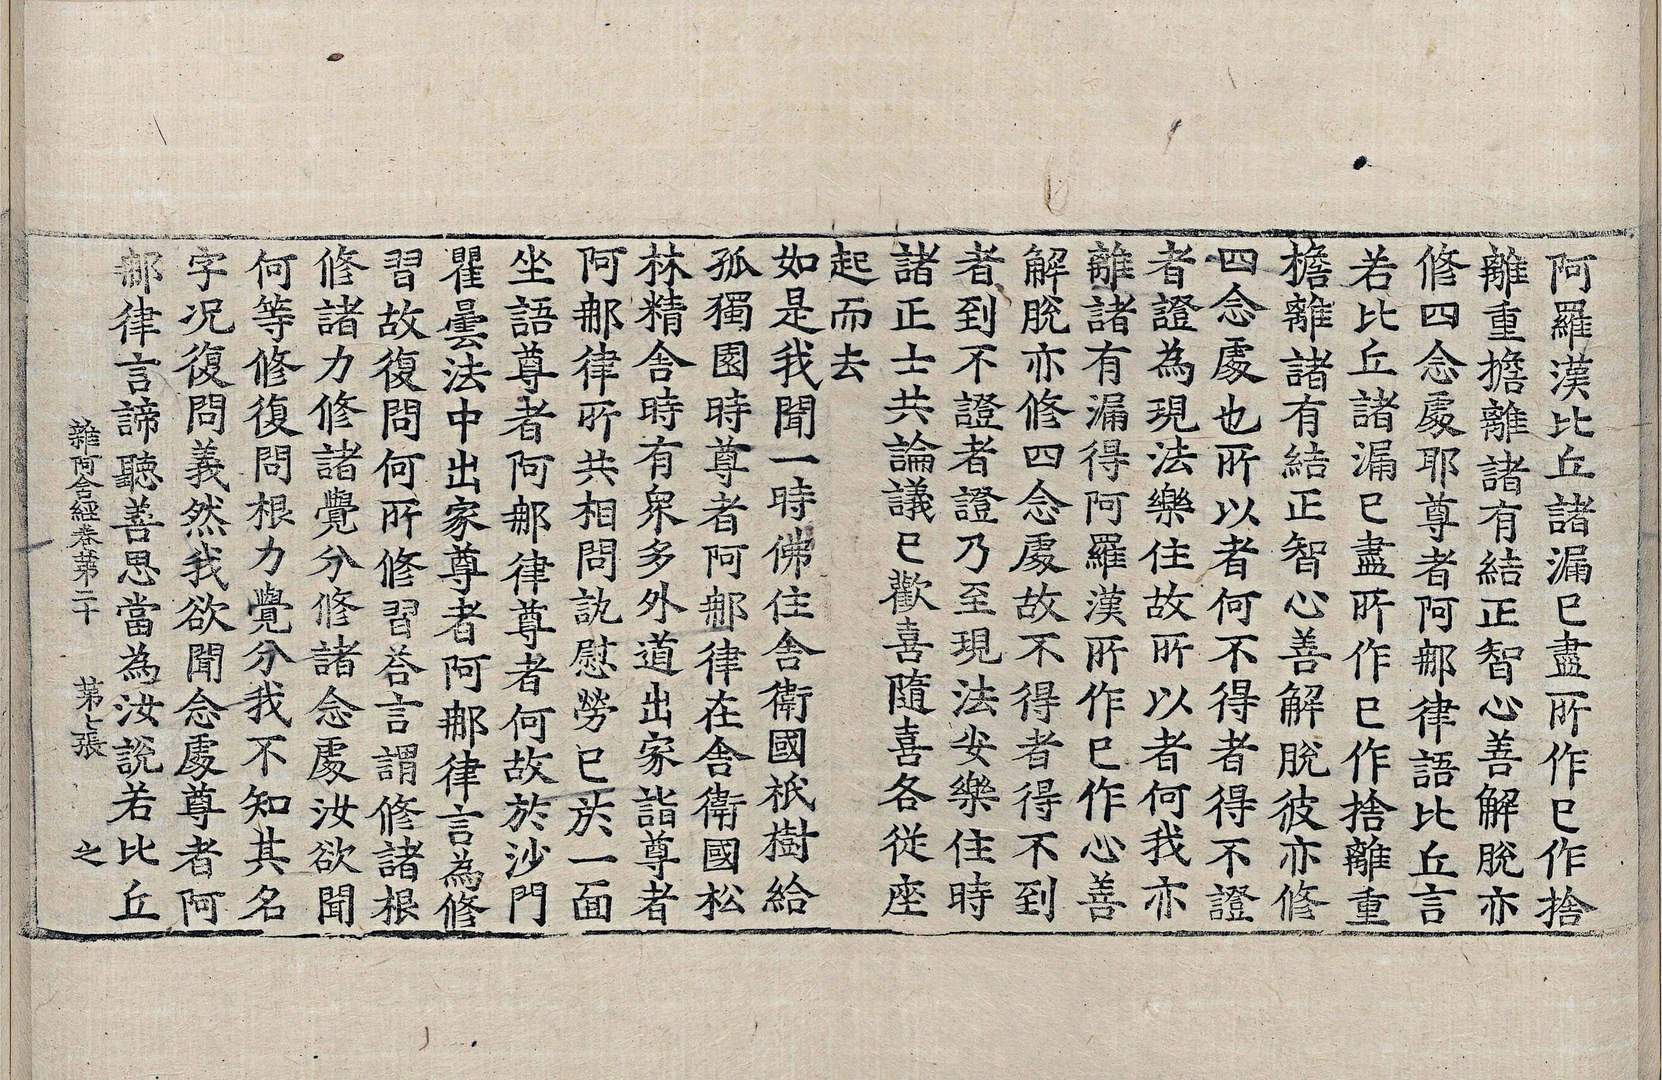 阿羅漢比丘諸漏已盡所作已作捨
離重擔離諸有結正智心善解脫亦
修四念處耶尊者阿那律語比丘言
若比丘諸漏已盡所作已作捨離重
擔離諸有結正智心善解脫彼亦修
四念處也所以者何不得者得不證
者證為現法樂住故所以者何我亦
離諸有漏得阿羅漢所作已作心善
解脫亦修四念處故不得者得不到
者到不證者證乃至現法安樂住時
諸正士共論議已歡喜隨喜各從座
起而去
如是我聞一時佛住舍衛國祇樹給
孤獨園時尊者阿那律在舍衛國松
林精舍時有衆多外道出家詣尊者
阿那律所共相問訊慰勞已於一面
坐語尊者阿那律尊者何故於沙門
瞿曇法中出家尊者阿那律言為修
習故復問何所修習荅言謂修諸根
修諸力修諸覺分修諸念處汝欲聞
何等修復問根力覺分我不知其名
字况復問義然我欲聞念處尊者阿
那律言諦聽善思當為汝說若比丘
雜阿含經卷第二十 第七張 之